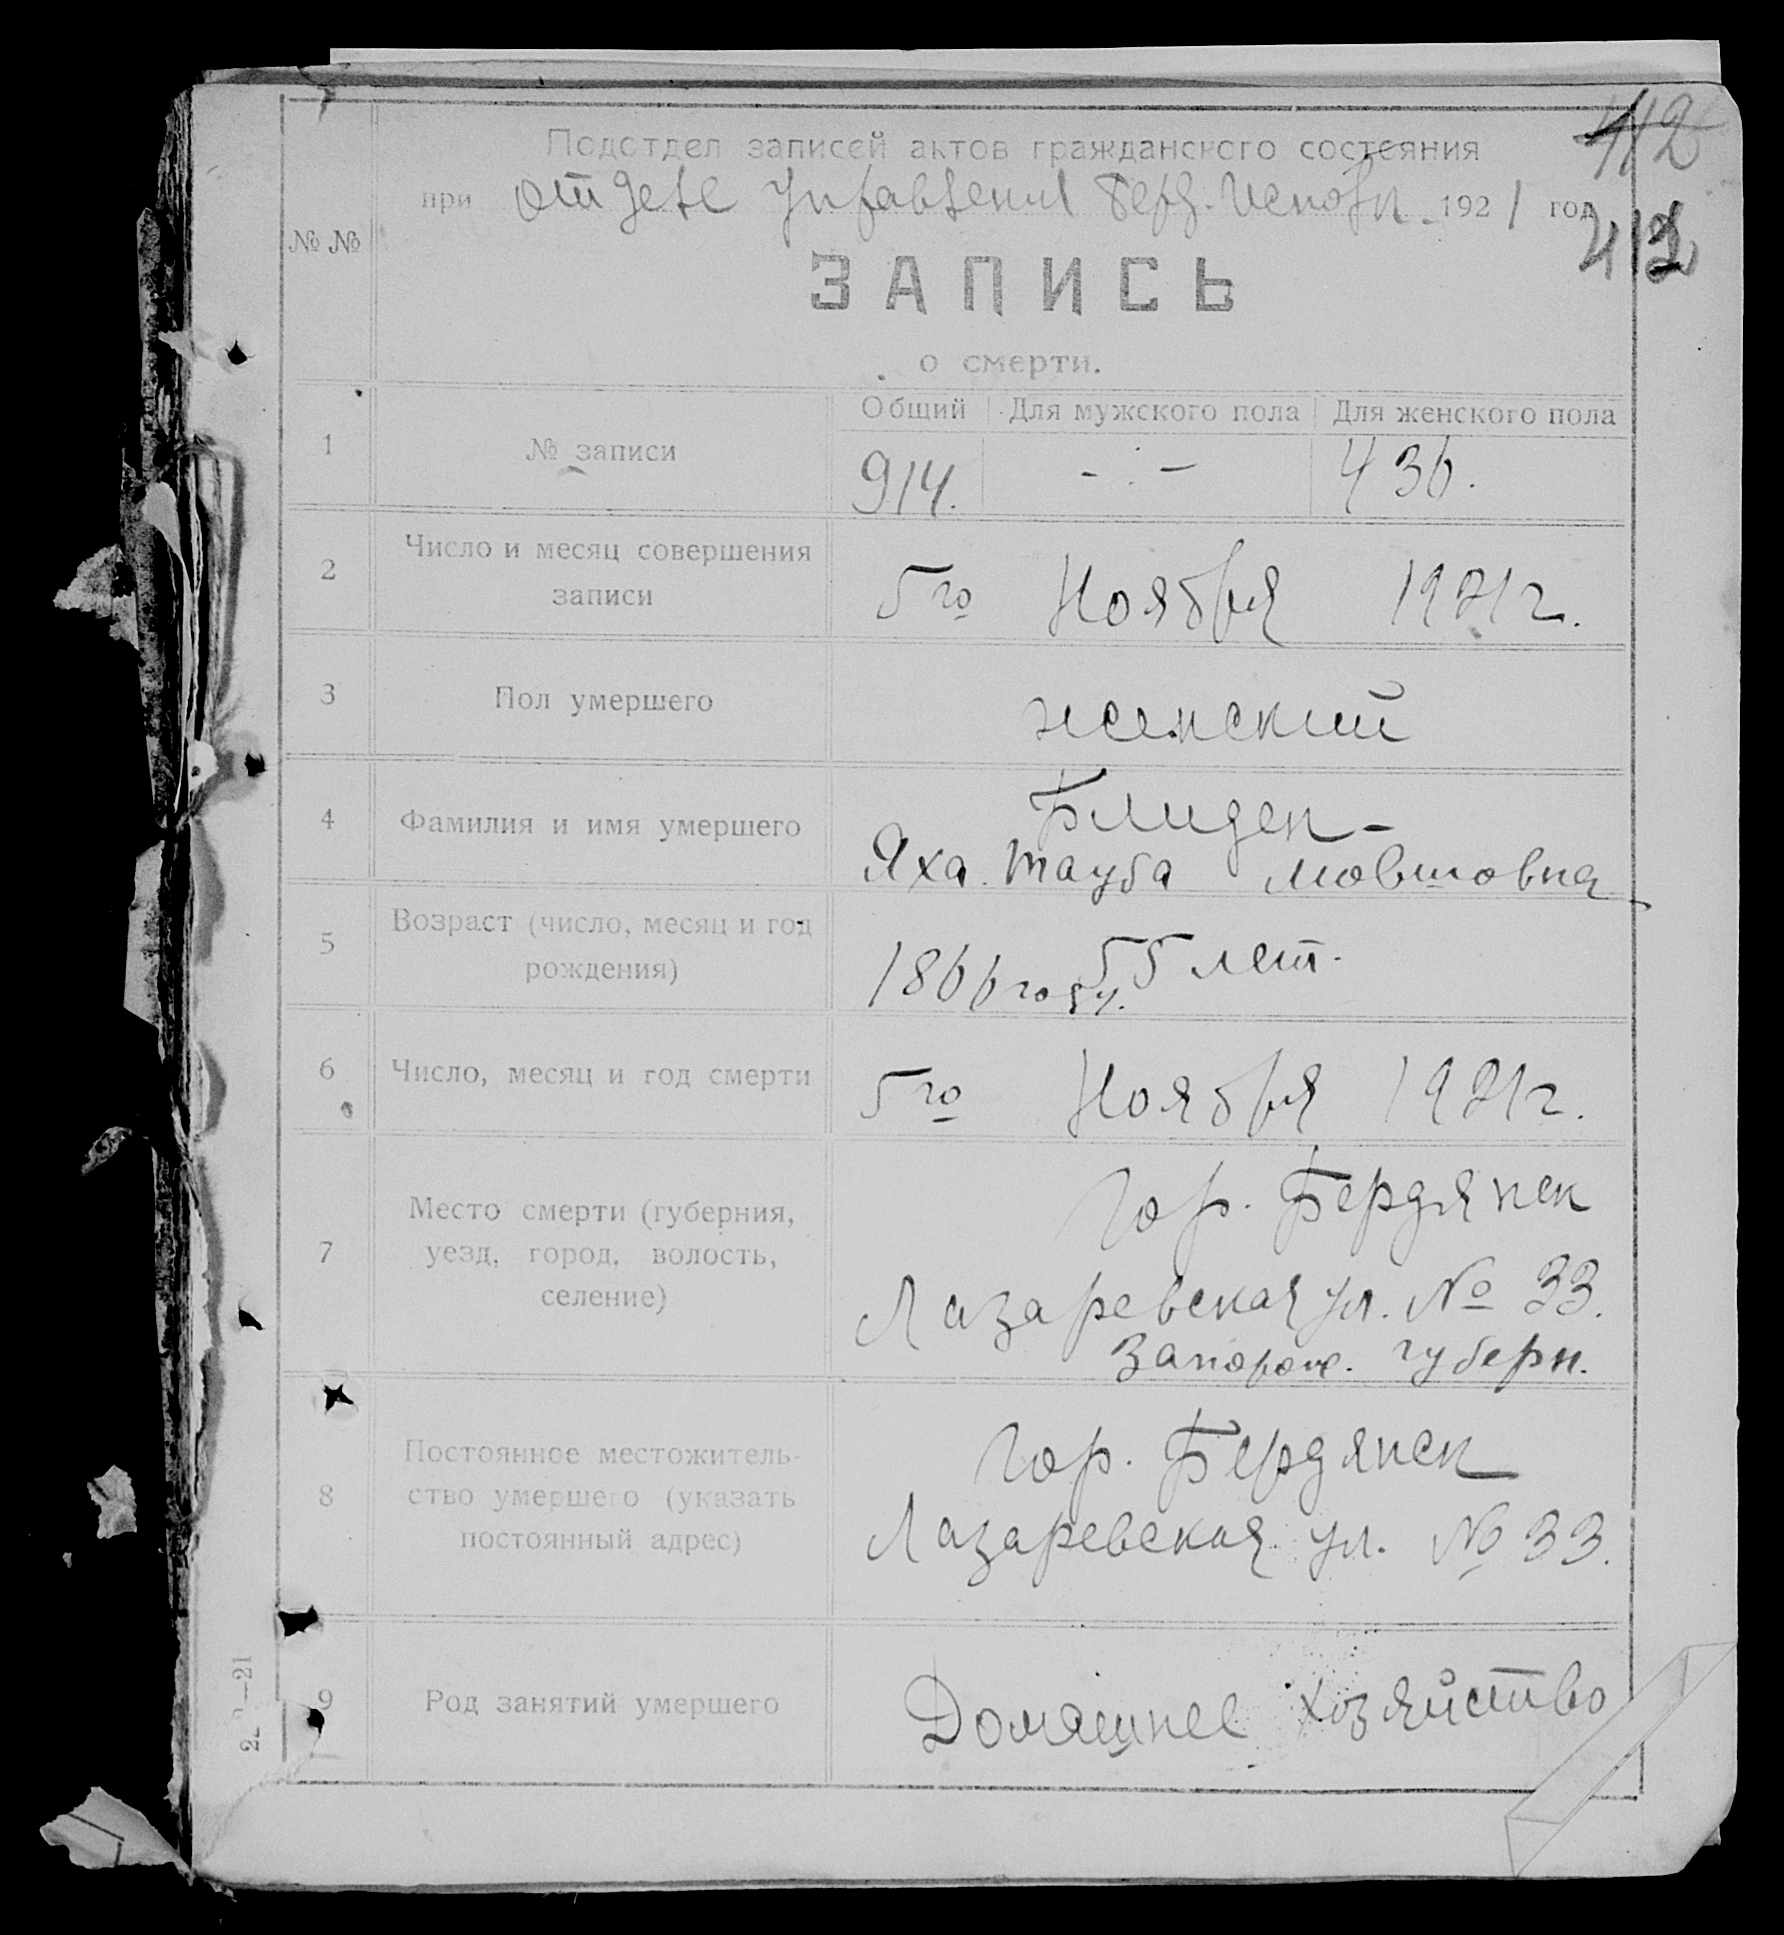 412
Подотдел записей актов гражданского состояния
при отделе Управления Берд. Исполк. 1921 год
412
№ №
ЗАПИСЬ
о смерти.
Общий Для мужского пола Для женского пола
1 № записи 914. - : - 436.
2 Число и месяц совершения
записи
5го Ноября 1921 г.
3 Пол умершего женский
4 Фамилия и имя умершего
Блиден-
Яха Тауба Мовшовна
5 Возраст (число, месяц и год
рождения)
1866 году. 55 лет.
6 Число, месяц и год смерти 5го Ноября 1921 г.
7 Место смерти (губерния,
уезд, город, волость,
селение)
Гор. Бердянск
Лазаревская ул. № 33.
Запорож. губерн.
8 Постоянное местожитель-
ство умершего (указать
постоянный адрес)
Гор. Бердянск
Лазаревская ул. № 33.
9 Род занятий умершего Домашнее хозяйство